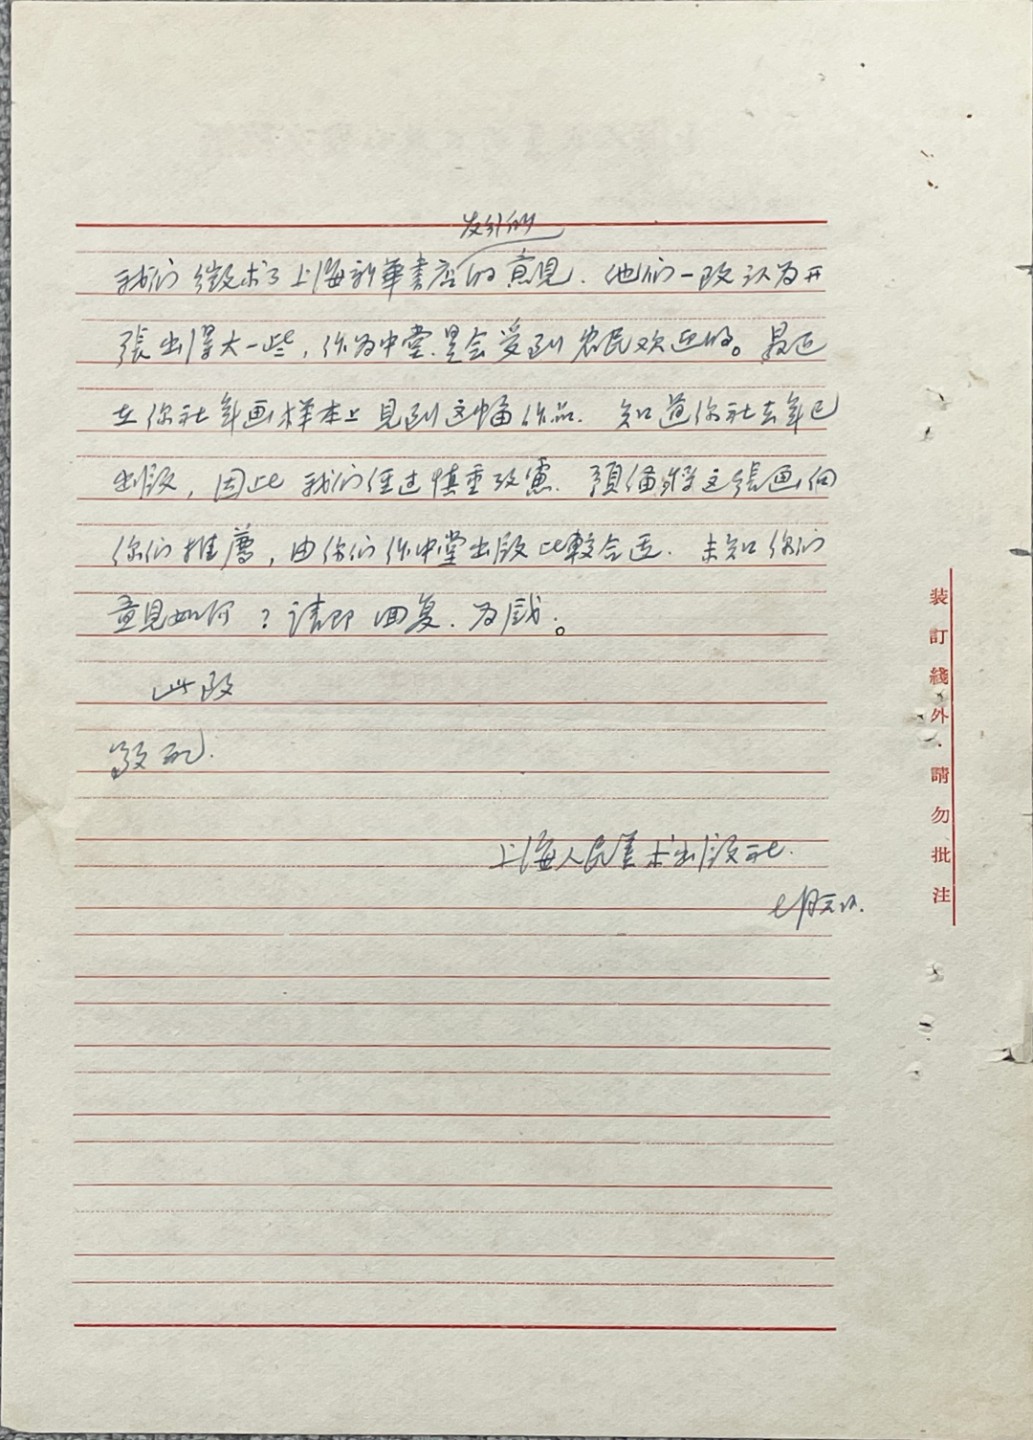 我们徵求了上海新華書店的意見.他们一致认为开
張出得大一些,作为中堂.是会受到农民欢迎的。最近
在你社年画样本上見到这幅作品.知道你社去年已
出版,因此我们经过慎重攷慮.預備将这張画向
你们推薦,由你们作中堂出版比較合适.未知你们
意見如何?请即回复.为感。
此致
敬礼.
上海人民美术出版社.
七月
装訂綫外·請勿批注